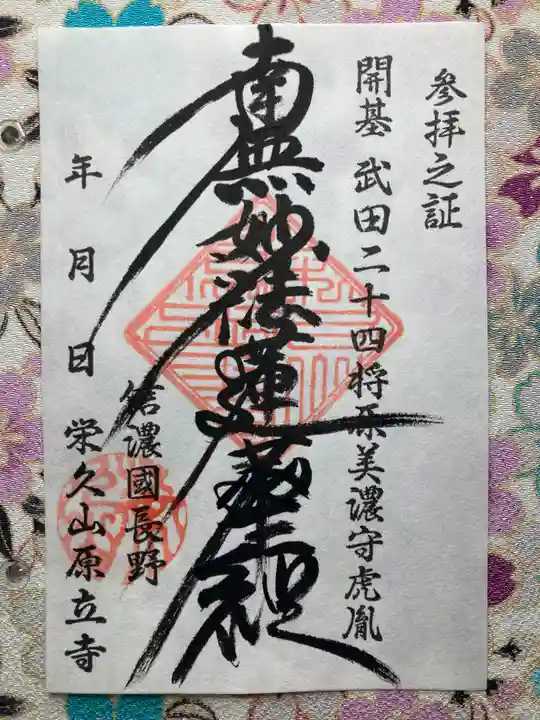 参拝之証
開基 武田二十四将原美濃守虎胤
南無妙法蓮華経
信濃國長野
年 月 日 栄久山原立寺